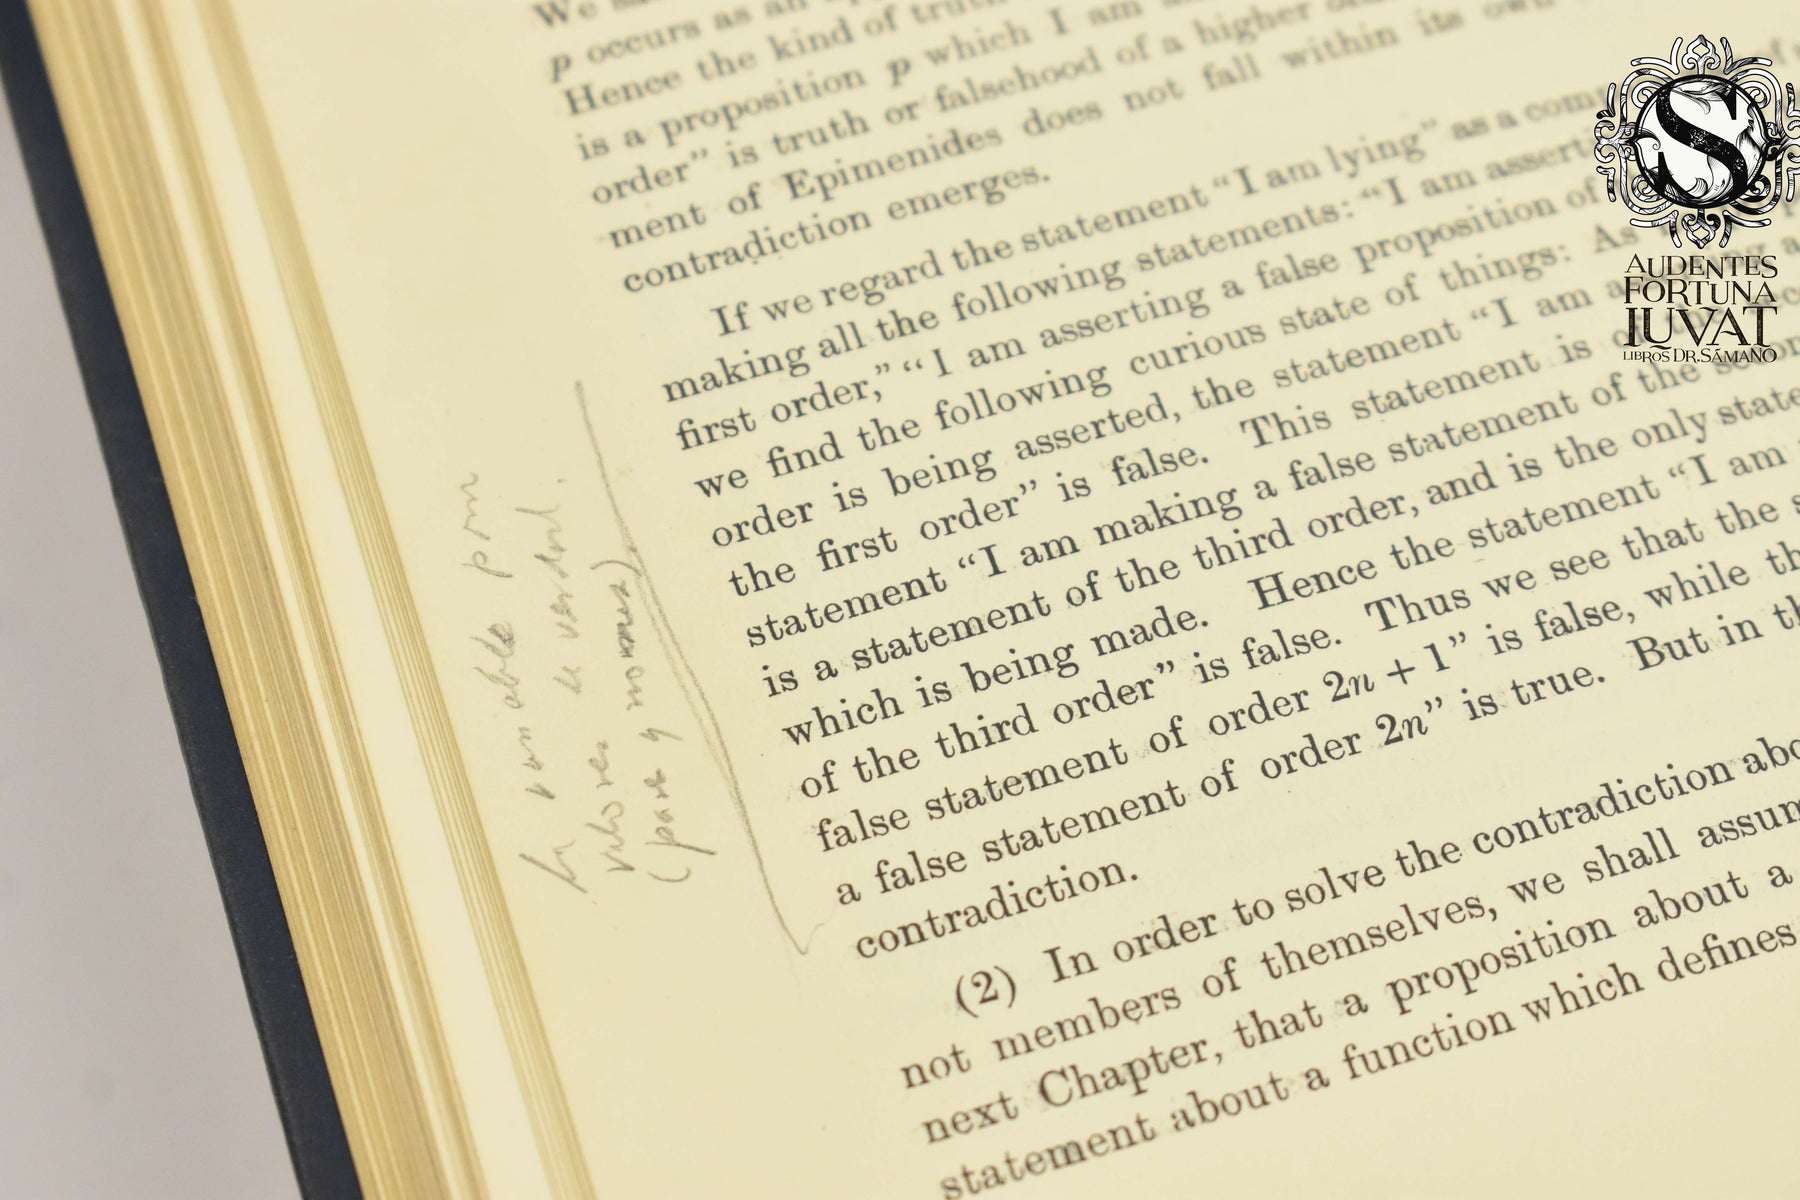 We
p occurs as an
Hence the kind of truth
is a proposition p which I am
order” is truth or falsehood of a higher
ment of Epimenides does not fall within its own
contradiction emerges.
If we regard the statement “I am lying” as a
making all the following statements: “I am
first order,” “I am asserting a false proposition of
we find the following curious state of things: As
order is being asserted, the statement “I am
the first order” is false. This statement is
statement “I am making a false statement of the
is a statement of the third order, and is the only
which is being made. Hence the statement “I am
of the third order” is false. Thus we see that the
false statement of order 2n + 1” is false, while
a false statement of order 2n” is true. But in
contradiction.
(2) In order to solve the contradiction
not members of themselves, we shall
next Chapter, that a proposition about a
statement about a function which defines
de verdad.
valores
(pares y nones)
S
AUDENTES
FORTUNA
IUVAT
LIBROS DR. SÁMANO